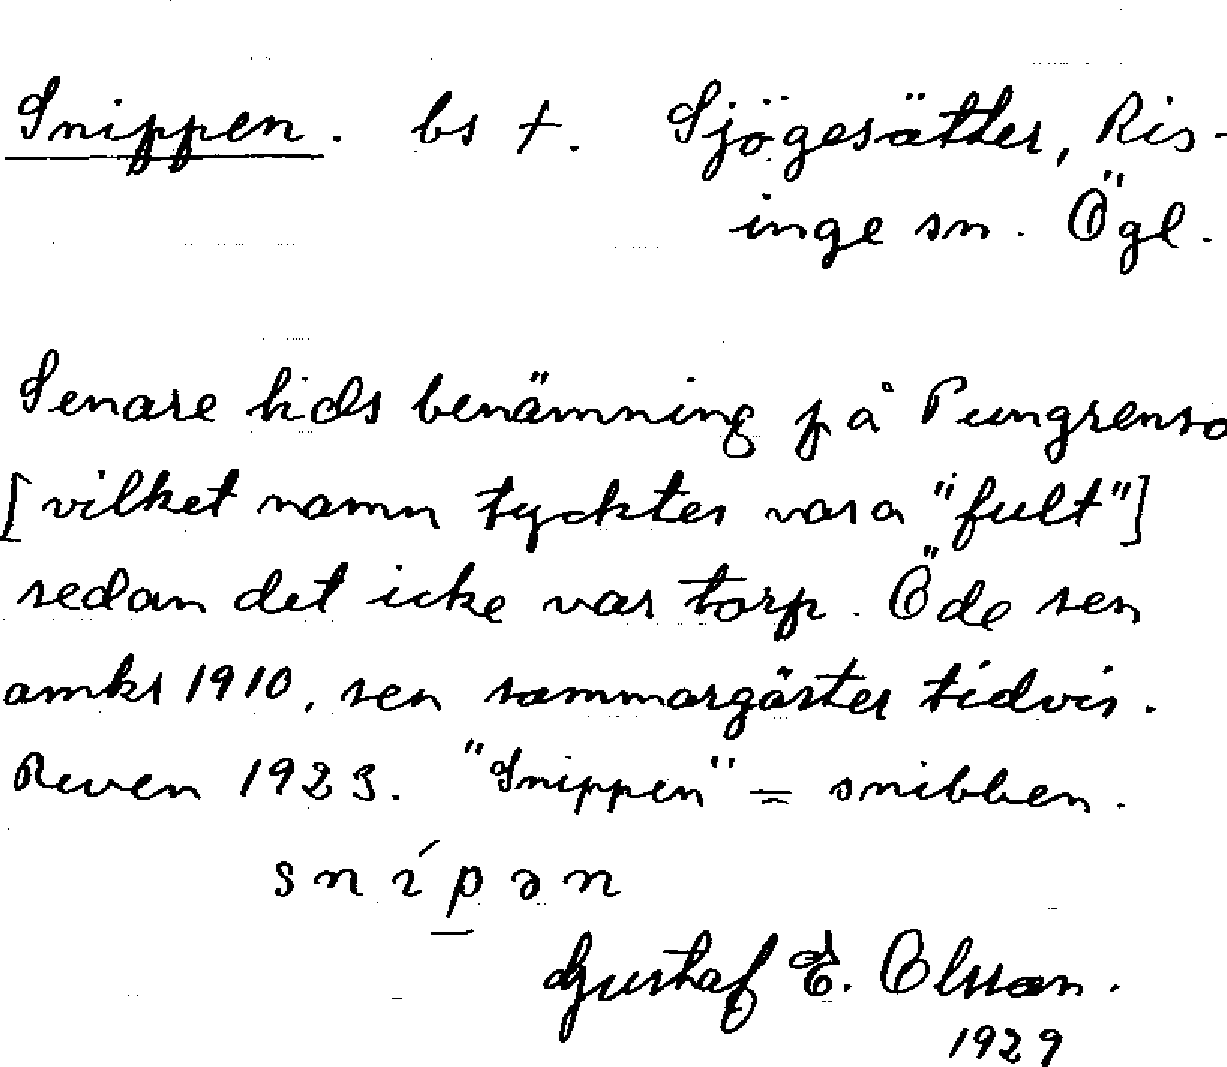 Snippen. bs †. Sjögesätter, Ris-
inge sn. Ögl.
Senare tids benämning på Pungrenso
[vilket namn tycktes vara "fult"]
sedan det icke var torp. Öde sen
omkr 1910, sen sommargäster tidvis.
Reven 1923. "Snippen" = snibben.
snípən
Gustaf E. Olsson.
1929